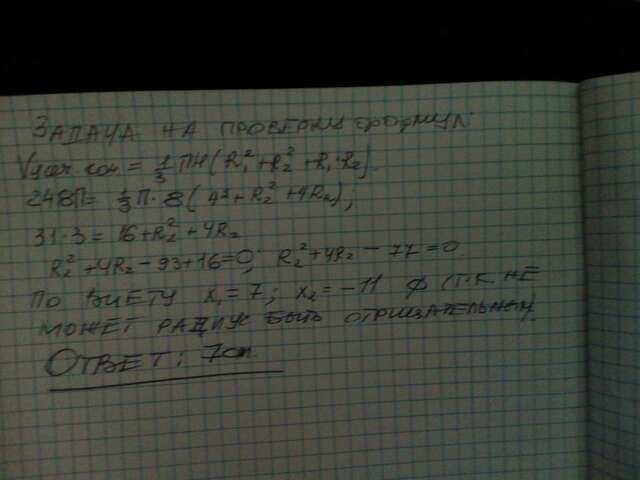 ЗАДАЧА НА ПРОВЕРКУ ФОРМУЛ.
Vусеч. кон. = 1/3 ПН(R₁²+R₂²+R₁·R₂)
248П = 1/3 П·8(4²+R₂²+4R₂);
31·3 = 16+R₂²+4R₂
R₂²+4R₂−93+16=0; R₂²+4R₂−77=0
ПО ВИЕТУ X₁=7; X₂=−11 ∅ (Т.К. НЕ
МОЖЕТ РАДИУС БЫТЬ ОТРИЦАТЕЛЬНЫМ
ОТВЕТ: 7см.